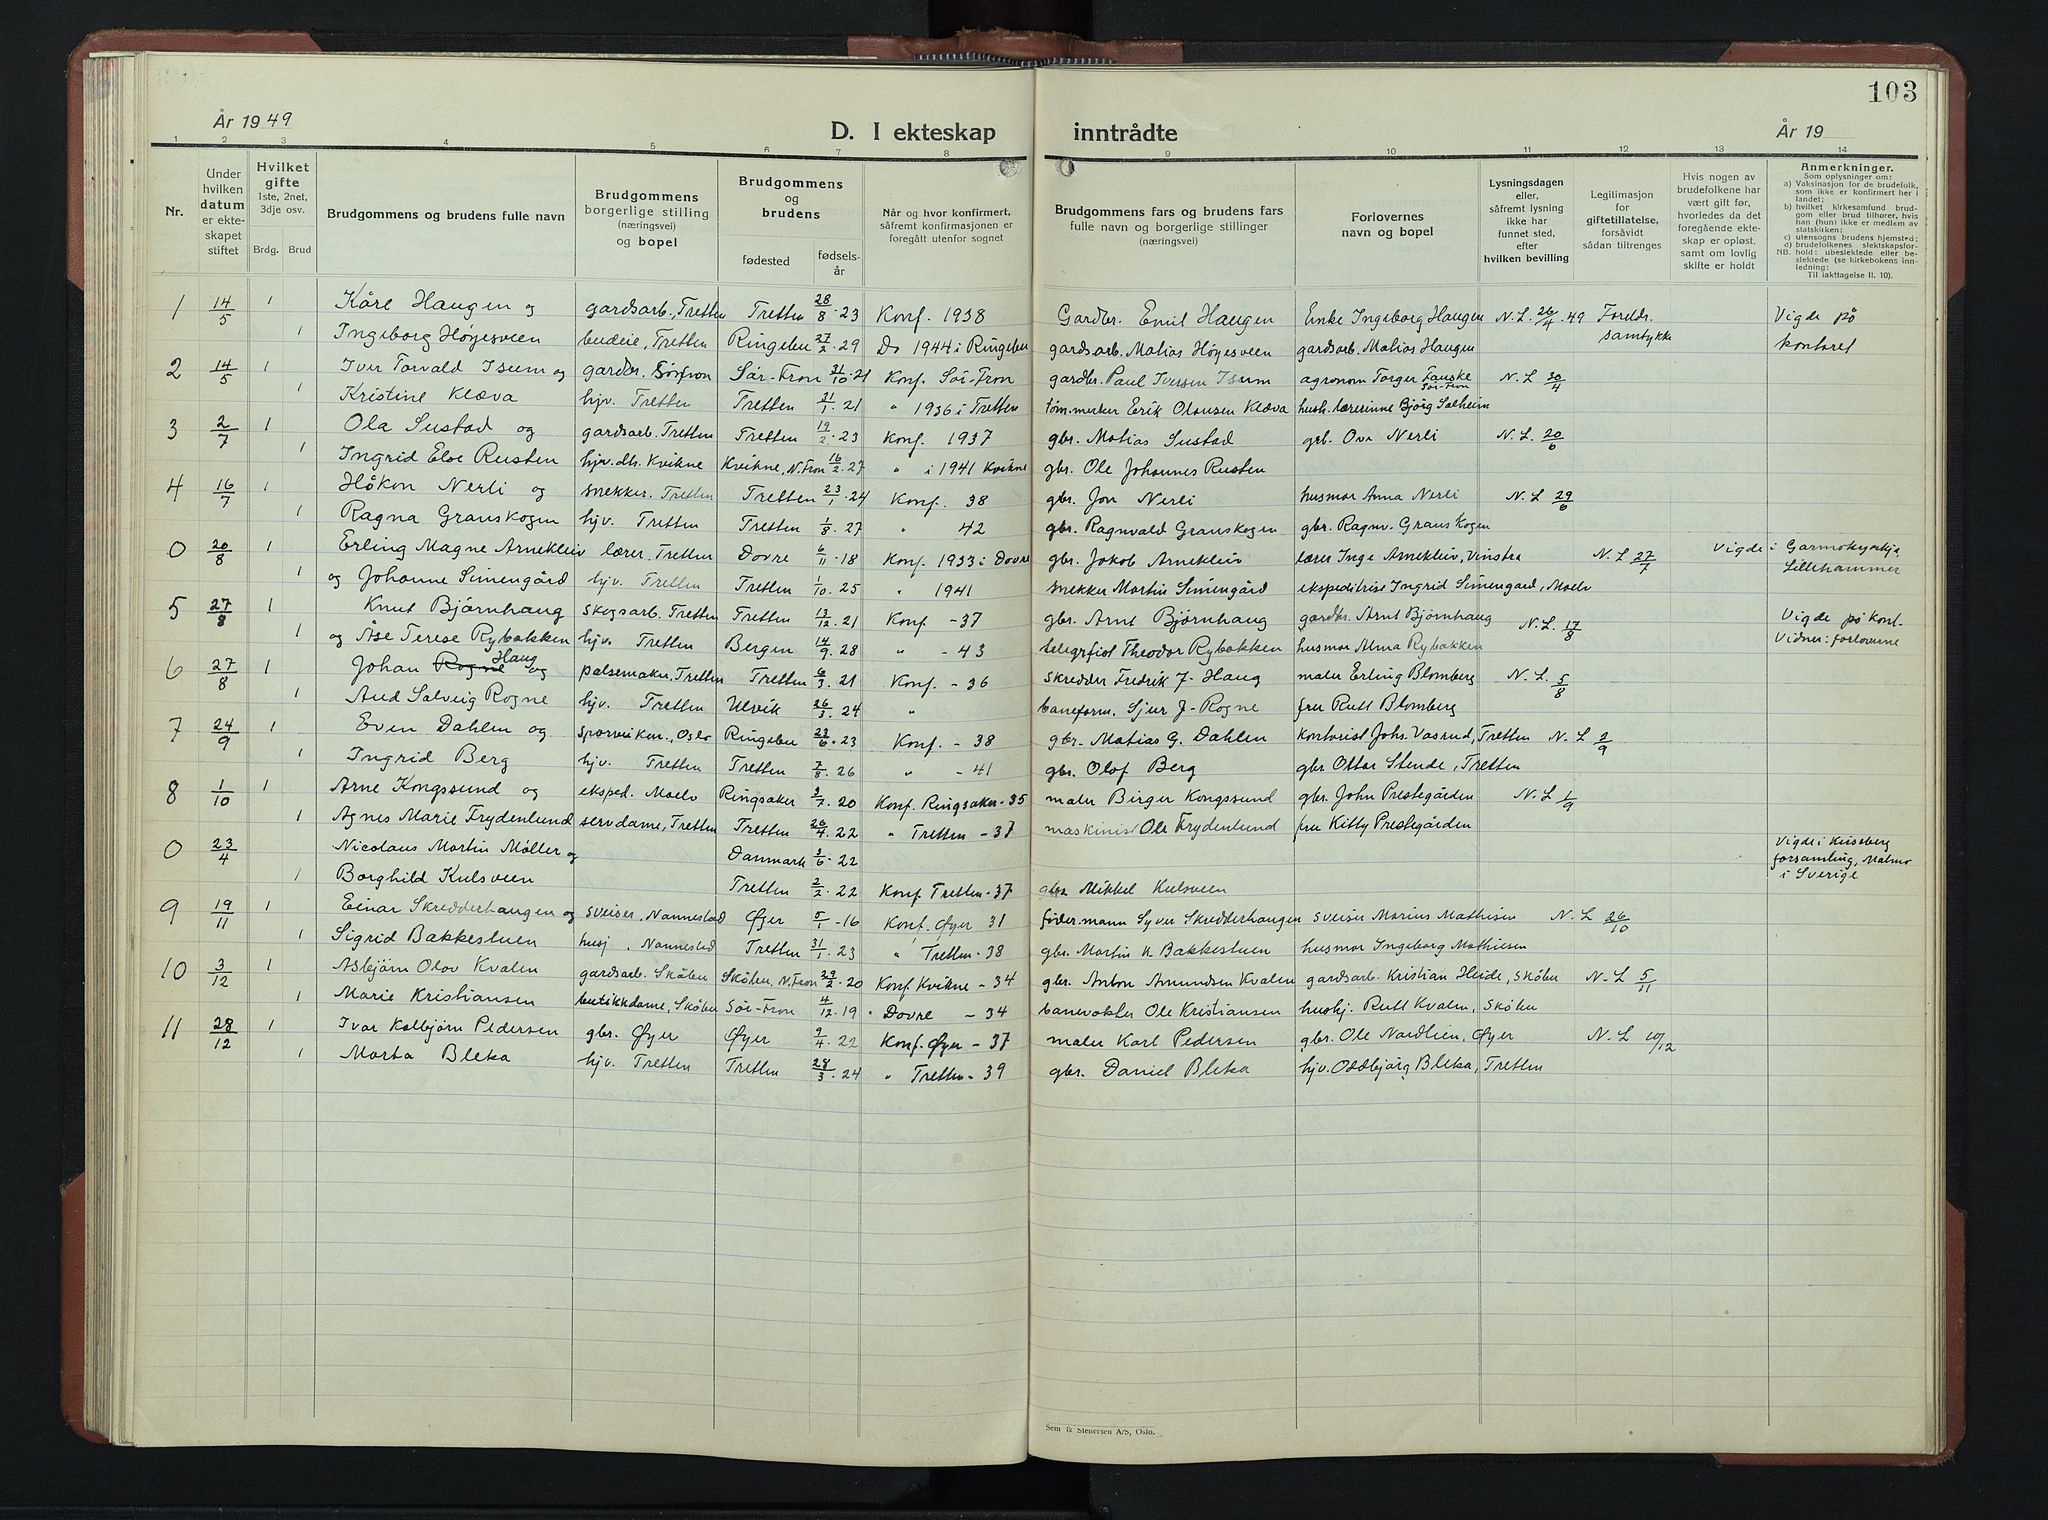 103
År 1949
D. I ekteskap inntrådte
År 19
1 2 3 4 5 6 7 8 9 10 11 12 13 14
Nr.
Under hvilken datum er ekteskapet stiftet
Hvilket gifte 1ste, 2net, 3dje osv.
Brdg. Brud
Brudgommens og brudens fulle navn
Brudgommens borgerlige stilling (næringsvei) og bopel
Brudgommens og brudens
fødested
fødselsår
Når og hvor konfirmert, såfremt konfirmasjonen er foregått utenfor sognet
Brudgommens fars og brudens fars fulle navn og borgerlige stillinger (næringsvei)
Forlovernes navn og bopel
Lysningsdagen eller, såfremt lysning ikke har funnet sted, efter hvilken bevilling
Legitimasjon for giftetillatelse, forsåvidt sådan tiltrenges
Hvis nogen av brudefolkene har vært gift før, hvorledes da det foregående ekteskap er opløst, samt om lovlig skifte er holdt
Anmerkninger.
Som oplysninger om:
a) Vaksinasjon for de brudefolk, som ikke er konfirmert her i landet;
b) hvilket kirkesamfund brudgom eller brud tilhører, hvis han (hun) ikke er medlem av statskirken;
c) utensogns brudens hjemsted;
d) brudefolkenes slektskapsforhold: ubeslektede eller beslektede (se kirkebokens innledning:
NB.
Til iakttagelse II. 10).
1 14/5 1 Kåre Haugen og gardsarb., Tretten Tretten 28/8 - 23 Konf. 1938 Gardbr. Emil Haugen Enke Ingeborg Haugen N. L. 26/4 - 49 Foreldr. samtykke Vigde på
1 Ingeborg Høyesveen budeie, Tretten Ringebu 27/2 - 29 Do 1944 i Ringebu gardsarb. Matias Høyesveen gardsarb. Matias Haugen kontoret
2 14/5 1 Iver Torvald Isum og gardbr. Sørfron Sør-Fron 31/10 - 21 Konf. Sør-Fron gardbr. Paul Iversen Isum agronom Torger Fauske Sør-Fron N. L 30/4
1 Kristine Klæva hjv. Tretten Tretten 21/1 - 21 " 1936 i Tretten tøm.merker Erik Olausen Klæva hush. lærerinne Bjørg Solheim
3 2/7 1 Ola Sustad og gardsarb. Tretten Tretten 19/2 - 23 Konf. 1937 gbr. Matias Sustad grb. Ova Nerli N. L. 20/6
1 Ingrid Eloe Rusten hjv. dtr. Kvikne Kvikne, N. Fron 16/2 - 27 " i 1941 Kvikne gbr. Ole Johannes Rusten
4 16/7 1 Håkon Nerli og snekker. Tretten Tretten 23/1 - 24 Konf. 38 gbr. Jon Nerli husmor Anna Nerli N. L 29/6
1 Ragna Granskogen hjv. Tretten Tretten 1/8 - 27 " 42 gbr. Ragnvald Granskogen gbr. Ragnv. Granskogen
0 20/8 1 Erling Magne Arnekleiv lærer, Tretten Dovre 6/11 - 18 Konf. 1933 i Dovre gbr. Jakob Arnekleiv lærer Inge Arnekleiv, Vinstra N. L 27/7 Vigde i Garmokyrkja,
1 og Johanne Simengård hjv. Tretten Tretten 1/10 - 25 " 1941 snekker Martin Simengård ekspeditrise Ingrid Simengard, Moelv Lillehammer
5 27/8 1 Knut Bjørnhaug skogsarb. Tretten Tretten 13/12 - 21 Konf - 37 gbr. Arnt Bjørnhaug gardbr. Arnt Bjørnhaug N. L. 17/8 Vigde på kont.
1 og Åse Terese Rybakken hjv. Tretten Bergen 14/9 - 28 " - 43 telegrfist Theodor Rybakken husmor Alma Rybakken Vidner: forloverne
6 27/8 1 Johan Rogne Haug og pølsemaker, Tretten Tretten 6/3 - 21 Konf. - 36 skredder Fredrik J. Haug maler Erling Blomberg N. L. 5/8
1 Aud Solveig Rogne hjv. Tretten Ulvik 26/3 - 24 " baneform. Sjur J. Rogne fru Rutt Blomberg
7 24/9 1 Even Dahlen og sporveiksn., Oslo Ringebu 23/6 - 23 Konf. - 38 gbr. Matias G. Dahlen kontorist Johs. Vasrud, Tretten N. L 2/9
1 Ingrid Berg hjv. Tretten Tretten 7/8 - 26 " - 41 gbr. Olof Berg gbr Ottar Stende, Tretten
8 1/10 1 Arne Kongssund og eksped. Moelv Ringsaker 3/7 - 20 Konf. Ringsaker - 35 maler Birger Kongssund gbr. John Prestegården N. L 1/9
1 Agnes Marie Frydenlund servdame, Tretten Tretten 26/4 - 22 " Tretten - 37 maskinist Ole Frydenlund fru Kitty Prestegården
0 23/4 Nicolaus Martin Møller og Danmark 3/6 - 22 Vigde i Kirseberg
1 Borghild Kulsveen Tretten 2/2 - 22 Konf Tretten - 37 gbr Mikkel Kulsveen forsamling, Malmø i Sverige
9 19/11 1 Einar Skredderhaugen og sveiser, Nannestad Øyer 5/1 - 16 Konf. Øyer 31 føder.mann Syver Skredderhaugen sveiser Marius Mathisen N. L 26/10
1 Sigrid Bakkestuen husj, Nannestad Tretten 31/1 - 23 " Tretten - 38 gbr. Martin N. Bakkestuen husmor Ingeborg Mathiesen
10 3/12 1 Asbjørn Olov Kvalen gardsarb. Skåbu Skåbu, N. Fron 29/2 - 20 Konf. Kvikne - 34 gbr. Anton Amundsen Kvalen gardsarb. Kristian Heide, Skåbu N. L 5/11
1 Marie Kristiansen butikkdame, Skåbu Sør-Fron 4/12 - 19 " Dovre - 34 banevokter Ole Kristiansen hushj. Rutt Kvalen, Skåbu
11 28/12 1 Ivar Kolbjørn Pedersen gbr. Øyer Øyer 9/4 - 22 Konf. Øyer - 37 maler Karl Pedersen gbr. Ole Nordlien, Øyer N. L 10/12
1 Marta Bleka hjv. Tretten Tretten 28/3 - 24 " Tretten - 39 gbr. Daniel Bleka hjv. Oddbjørg Bleka, Tretten
Sem & Stenersen A/S, Oslo.